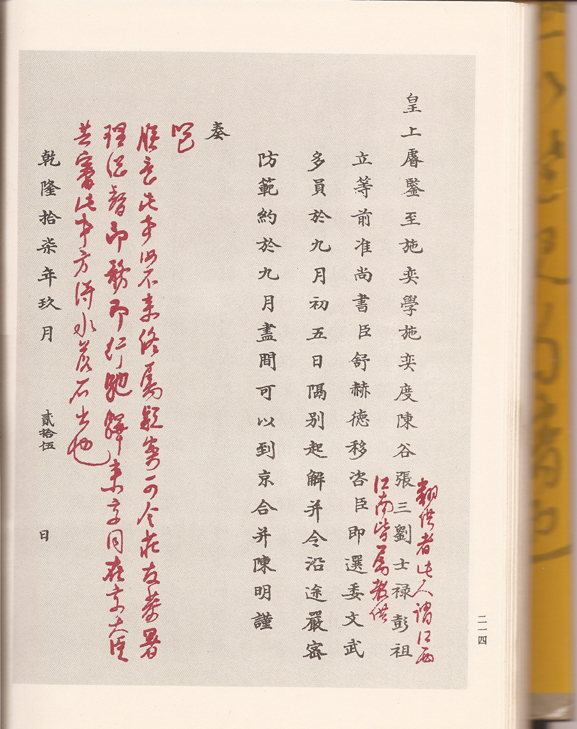 二一四
翻供者此人謂江西
江南皆屬教供
皇上睿鑒至施奕學施奕度陳谷張三劉士祿彭祖
立等前准尚書臣舒赫德移咨臣即選委文武
多員於九月初五日隔別起解并令沿途嚴密
防範約於九月盡間可以到京合并陳明謹
奏
覽
朕意此事汝不來終屬疑案可令莊有恭署
理總督印務即行馳驛來京同在京大臣
共審此事方得水落石出也
乾隆拾柒年玖月 貳拾伍 日